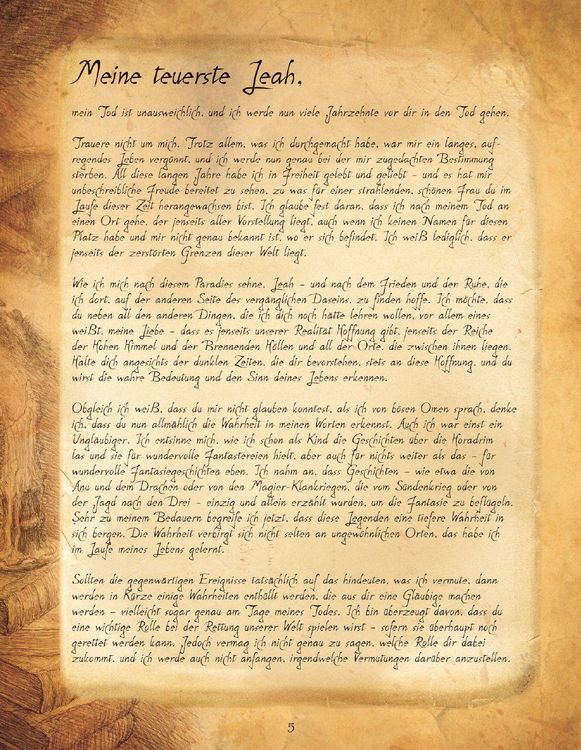 Meine teuerste Leah,
mein Tod ist unausweichlich, und ich werde nun viele Jahrzehnte vor dir in den Tod gehen.
Trauere nicht um mich. Trotz allem, was ich durchgemacht habe, war mir ein langes, auf-
regendes Leben vergönnt, und ich werde nun genau bei der mir zugedachten Bestimmung
sterben. All diese langen Jahre habe ich in Freiheit gelebt und geliebt – und es hat mir
unbeschreibliche Freude bereitet zu sehen, zu was für einer strahlenden, schönen Frau du im
Laufe dieser Zeit herangewachsen bist. Ich glaube fest daran, dass ich nach meinem Tod an
einen Ort gehe, der jenseits aller Vorstellung liegt, auch wenn ich keinen Namen für diesen
Platz habe und mir nicht genau bekannt ist, wo er sich befindet. Ich weiß lediglich, dass er
jenseits der zerstörten Grenzen dieser Welt liegt.
Wie ich mich nach diesem Paradies sehne, Leah – und nach dem Frieden und der Ruhe, die
ich dort, auf der anderen Seite des vergänglichen Daseins, zu finden hoffe. Ich möchte, dass
du neben all den anderen Dingen, die ich dich noch hätte lehren wollen, vor allem eines
weißt, meine Liebe – dass es jenseits unserer Realität Hoffnung gibt, jenseits der Reiche
der Hohen Himmel und der Brennenden Höllen und all der Orte, die zwischen ihnen liegen.
Halte dich angesichts der dunklen Zeiten, die dir bevorstehen, stets an diese Hoffnung, und du
wirst die wahre Bedeutung und den Sinn deines Lebens erkennen.
Obgleich ich weiß, dass du mir nicht glauben konntest, als ich von bösen Omen sprach, denke
ich, dass du nun allmählich die Wahrheit in meinen Worten erkennst. Auch ich war einst ein
Ungläubiger. Ich entsinne mich, wie ich schon als Kind die Geschichten über die Horadrim
las und sie für wundervolle Fantastereien hielt, aber auch für nichts weiter als das – für
wundervolle Fantasiegeschichten eben. Ich nahm an, dass Geschichten – wie etwa die von
Anu und dem Drachen oder von den Magier-Klankriegen, die vom Sündenkrieg oder von
der Jagd nach den Drei – einzig und allein erzählt wurden, um die Fantasie zu beflügeln.
Sehr zu meinem Bedauern begreife ich jetzt, dass diese Legenden eine tiefere Wahrheit in
sich bergen. Die Wahrheit verbirgt sich nicht selten an ungewöhnlichen Orten, das habe ich
im Laufe meines Lebens gelernt.
Sollten die gegenwärtigen Ereignisse tatsächlich auf das hindeuten, was ich vermute, dann
werden in Kürze einige Wahrheiten enthüllt werden, die aus dir eine Gläubige machen
werden – vielleicht sogar genau am Tage meines Todes. Ich bin überzeugt davon, dass du
eine wichtige Rolle bei der Rettung unserer Welt spielen wirst – sofern sie überhaupt noch
gerettet werden kann. Jedoch vermag ich nicht genau zu sagen, welche Rolle dir dabei
zukommt, und ich werde auch nicht anfangen, irgendwelche Vermutungen darüber anzustellen.
5